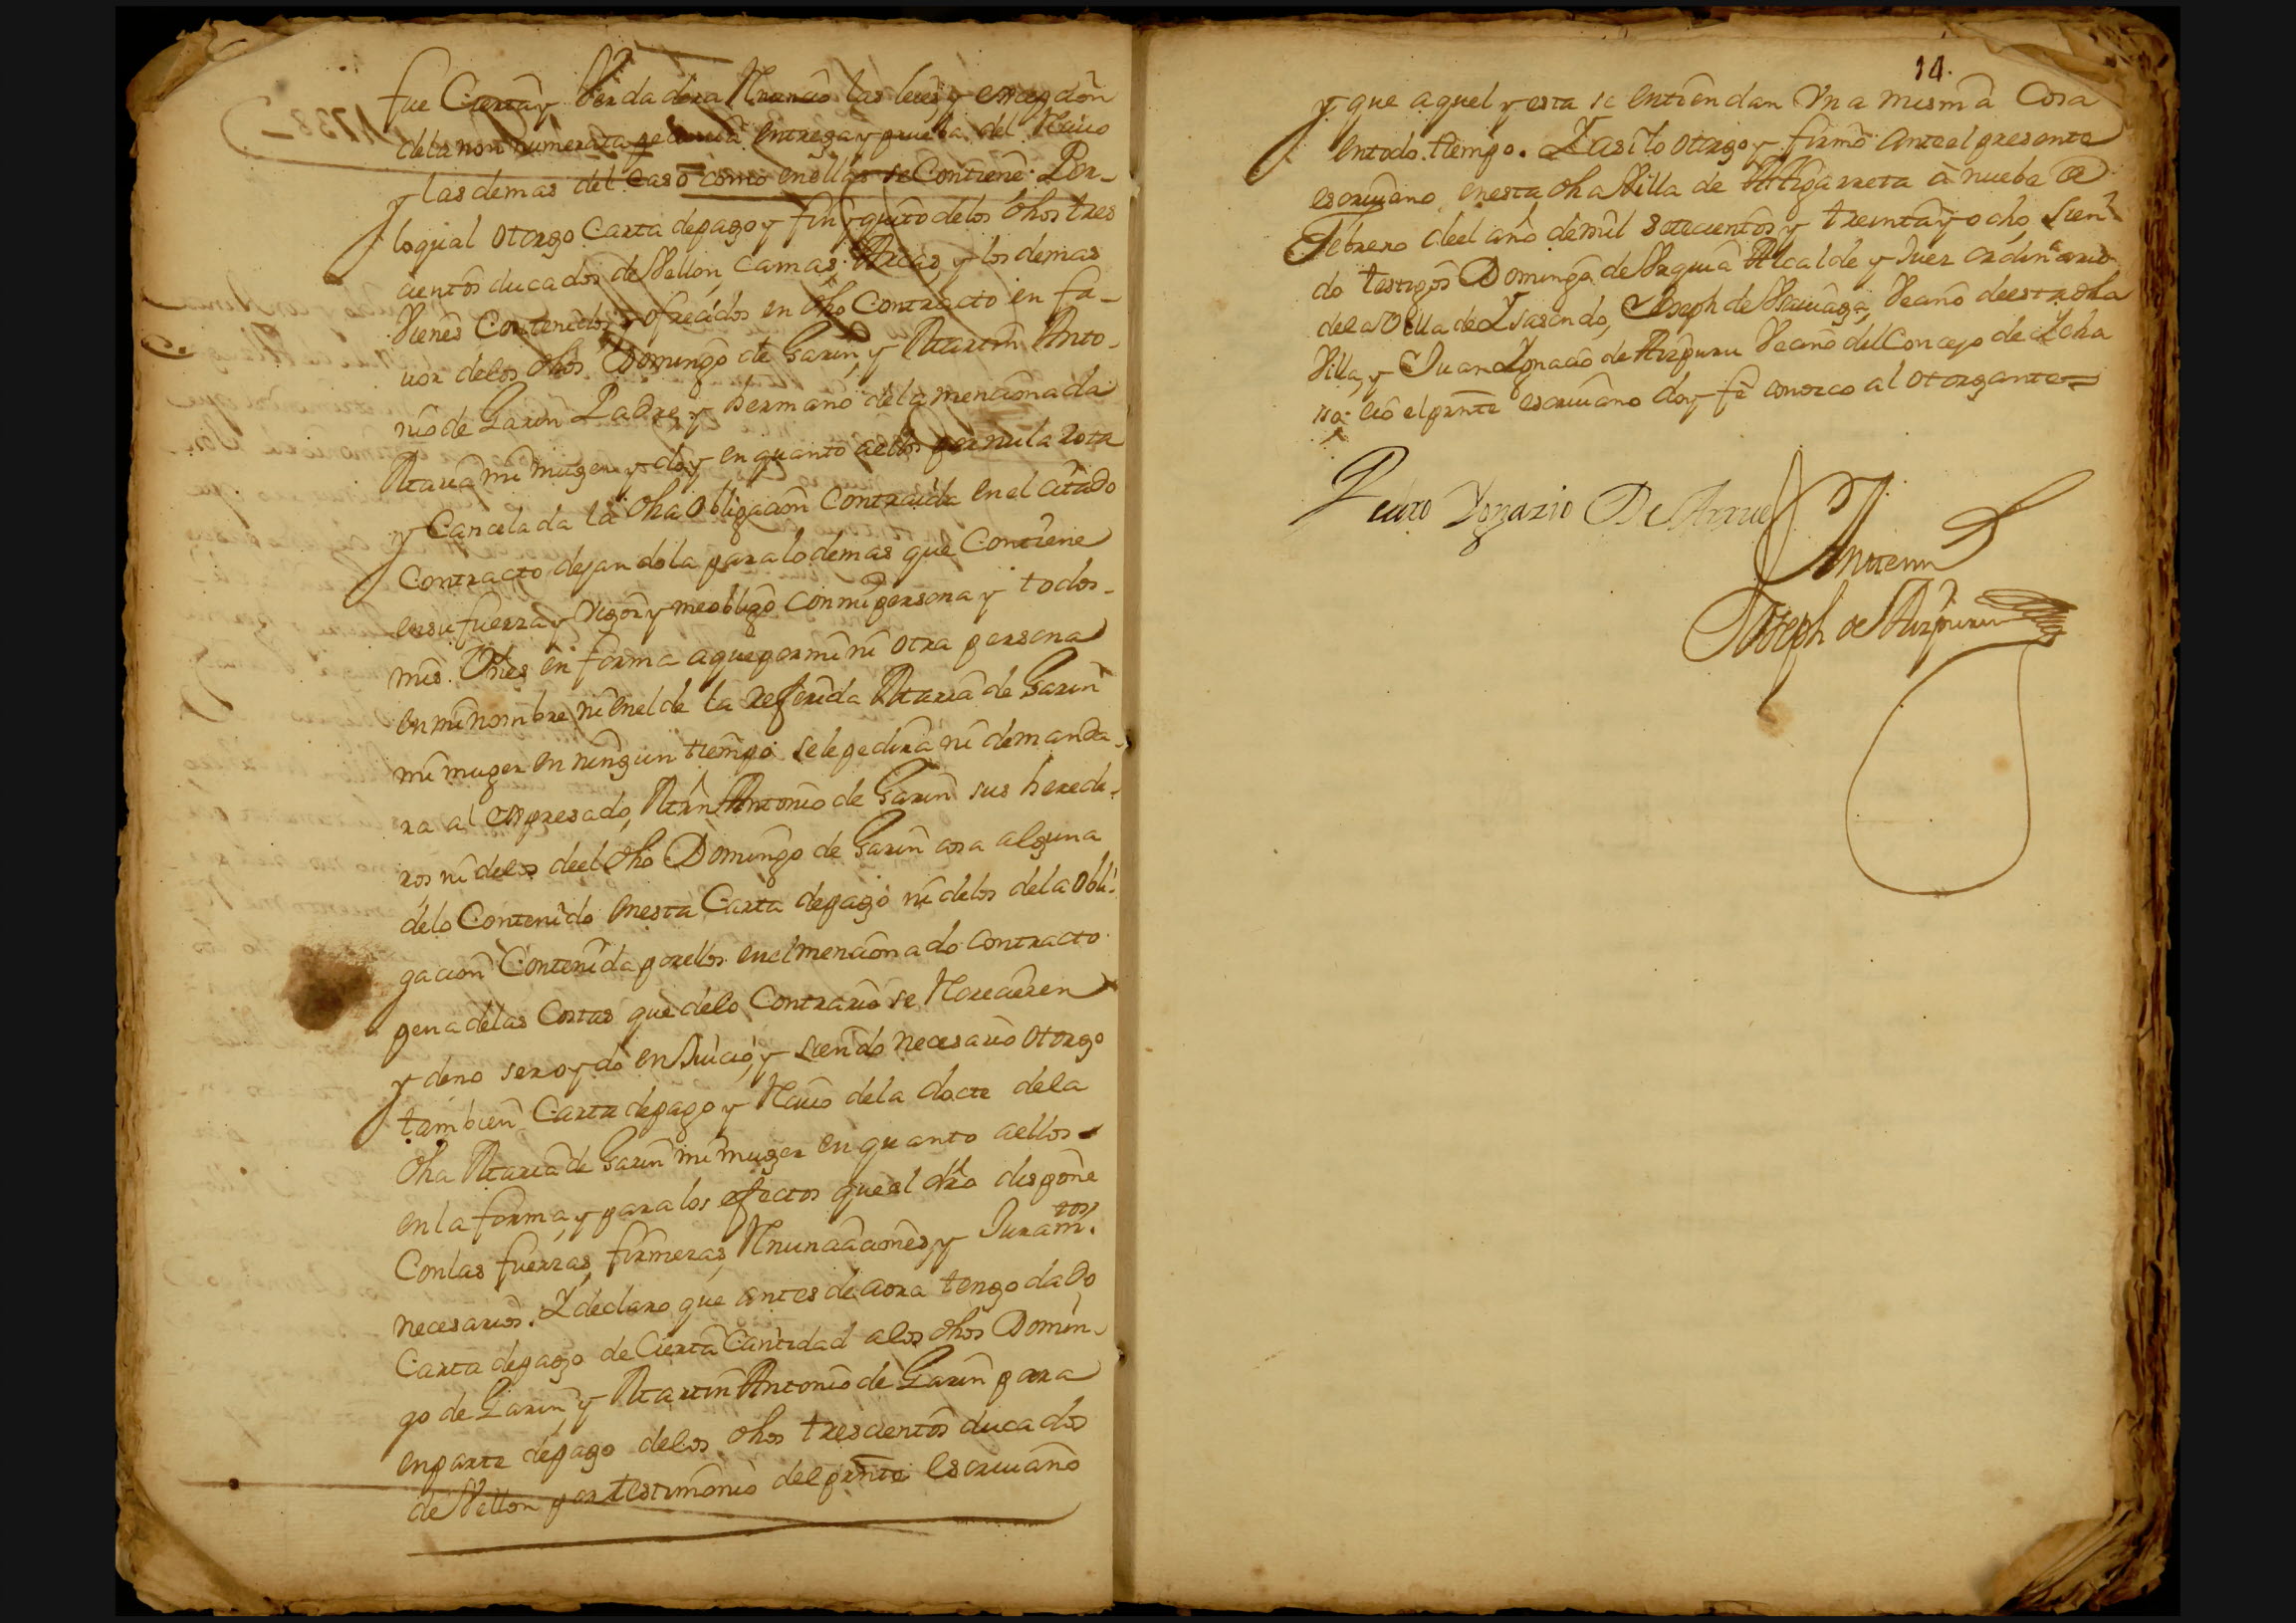 fue Cierta y Verdadera Renunció las leies y excepción
dela non numerata pecunia entrega y prueba del Reciuo
y las demas del caso como enellas se Contiene. Por-
loqual otorgo Carta depago y finyquito delos dhos tres
cientos ducados de Vellon, camas, Arcas, y los demas
Vienes Contenidos y ofrecidos en dho Contracto en fa-
uor delos dhos Domingo de Garin, y Martin Anto-
nio de Garin Padre, y Hermano dela mencionada
Maria mi muger y doy en quanto aellos por nula rota
y Cancelada la dha obligacion Contraida enel citado
Contracto, dejandola paralodemas que Contiene
ensu fuerza y vigor y meobligo conmi persona y todos-
mis Vnes en forma aqueparmi ni otra persona
enmi nombre, ni enelde la referida Maria de Garin
mi muger en ningun tiempo sele pedirà ni demanda-
ra al expresado, Mrn Antonio de Garin sus herede-
ros ni delos deel dho Domingo de Garin cosa alguna
delo Contenido enesta Carta depago ni delos dela obli-
gacion Contenida porellos enel mencionado contracto
pena delas Costas que delo Contrario se Recrecieren
y deno ser oydo en Juicio, y siendo necesario otorgo
tambien Carta depago y Reciuo dela docte dela
dha Maria de Garin mi muger en quanto aellos
en la forma, y para los efectos queel dro dispone
Conlas fuerzas, firmezas, Renunciaciones, y Juramtos.
necesarios. Y declaro que antes de aora tengo dado
Carta depago de Cierta Cantidad a los dhos Domin-
go de Garin, y Martin Antonio de Garin para
enparte depago delos dhos trescientos ducados
de Vellon por testimonio del prnte escriuano
14.
y que aquel y esta se entiendan Vna misma Cosa
entodo tiempo. Y asilo otorgo y firmò anteel presente
escriuano, enesta dha Villa de Astigarreta à nuebe de
Febrero deel año demil setecientos y treinta y ocho, sien-
do testigos Domingo de Vrquia Alcalde y Juez ordinario
dela Villa de Ysasondo, Joseph de Vicuñaga, Vecino deesta dha
Villa, y Juan Ygnacio de Aizpuru Vecino del Concejo de Ycha
so, è Yo elprnte escriuano doy fè conozco al otorgante=
Pedro Ygnazio De Arrue
Antemi
Joseph de Aizpuru